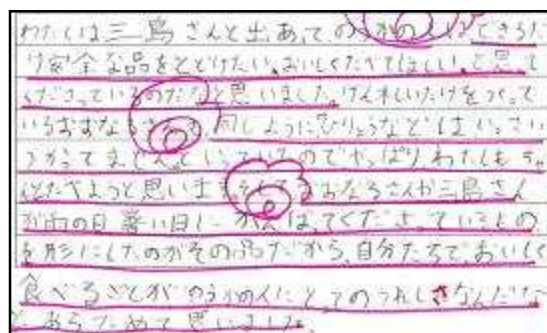 わたしは三島さんと出あってのうかの人はできるだ
け安全な品をとどけたい。おいしくたべてほしい。と思って
くださっているのだなと思いました。げんぼくしいたけをつくって
いるおおな さんも同じようにひりょうなどはいっさい
つかってません。といっていたのでやっぱりわたしもちゃ
んとたべようと思います。そして おなるさんが三島さん
が雨の日暑い日に がんばってくださっていることの
を形にしたのがその品だから、自分たちで、おいしく
食べることがのうかの人にとってのうれしさなんだな
とあらためて思いました。